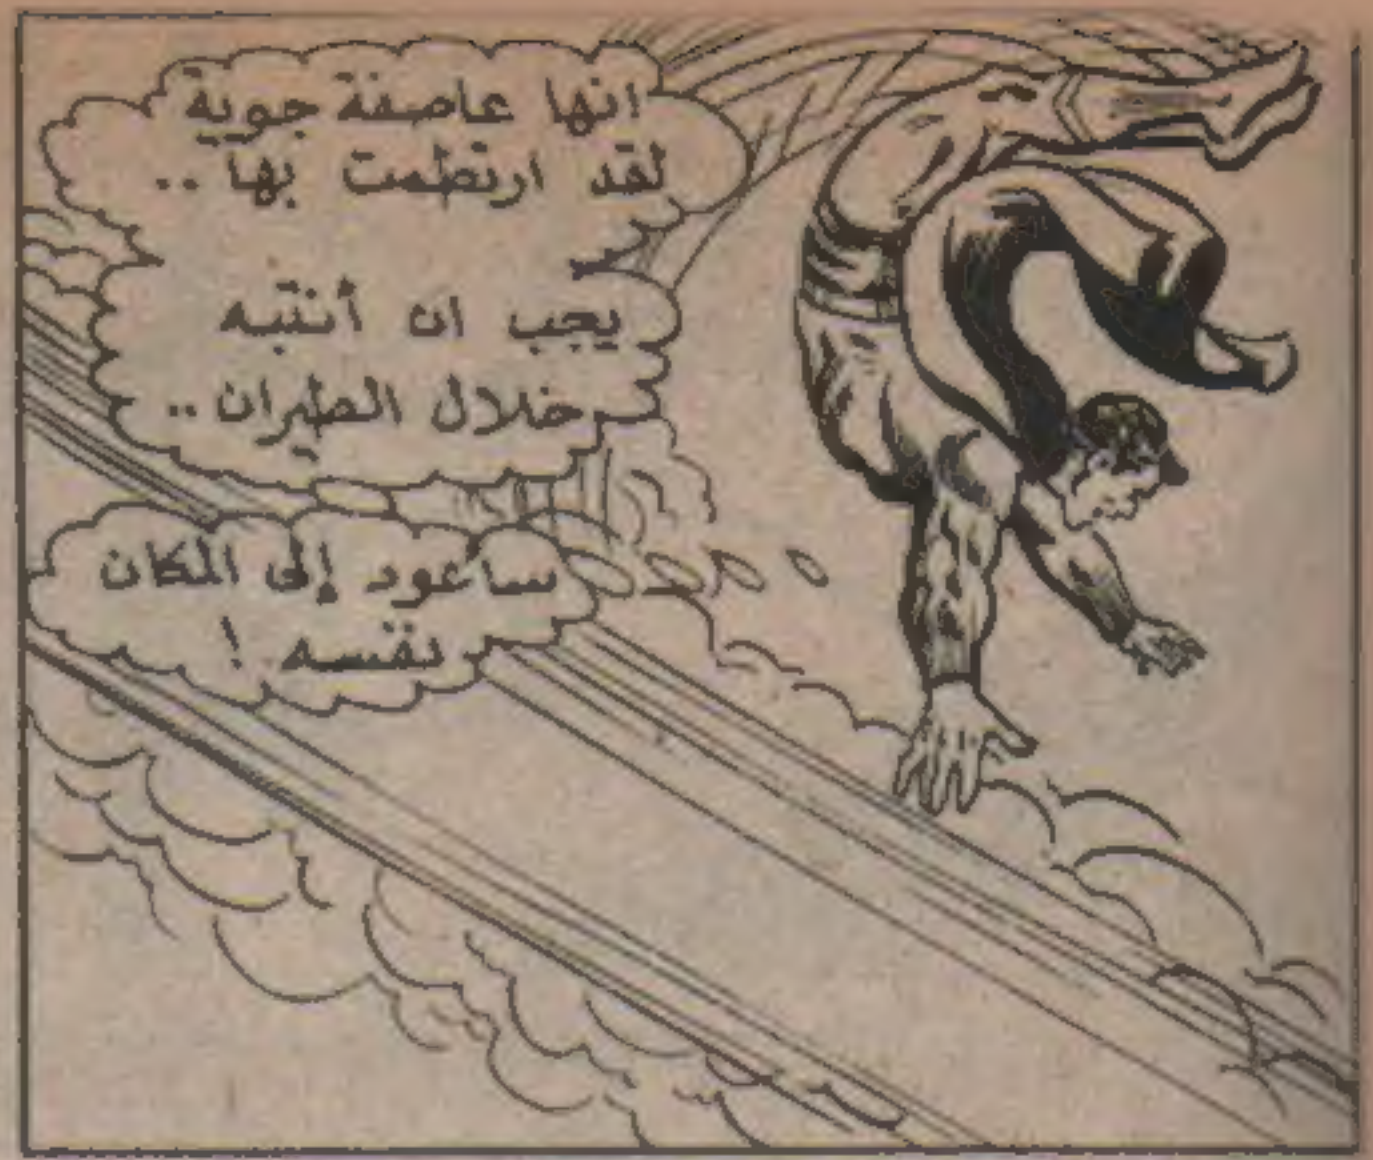 انها عاصفة جوية
لقد ارتطمت بها ..
يجب ان أنتبه
خلال الطيران ..
ساعود إلى المكان
نفسه !